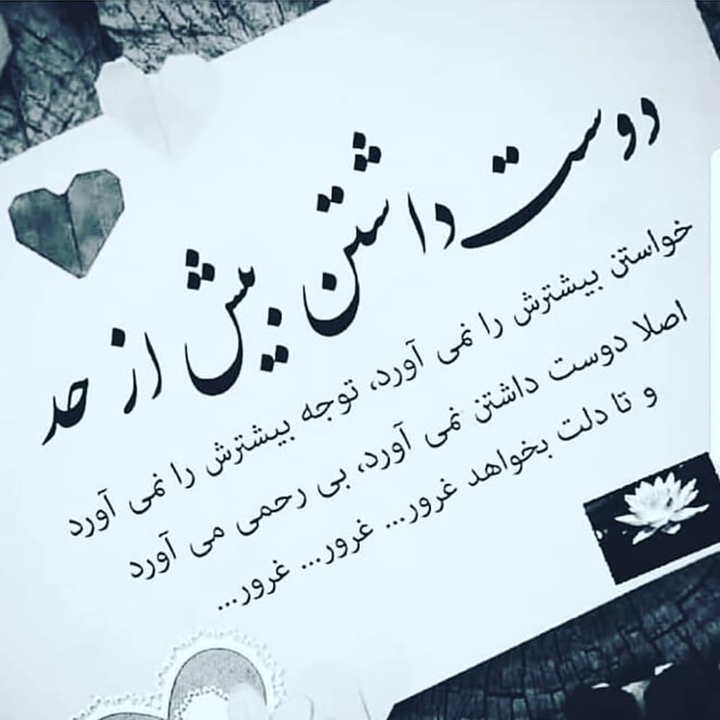 دوست داشتن بیش از حد
خواستن بیشترش را نمی آورد، توجه بیشترش را نمی آورد
اصلا دوست داشتن نمی آورد، بی رحمی می آورد
و تا دلت بخواهد غرور... غرور... غرور...